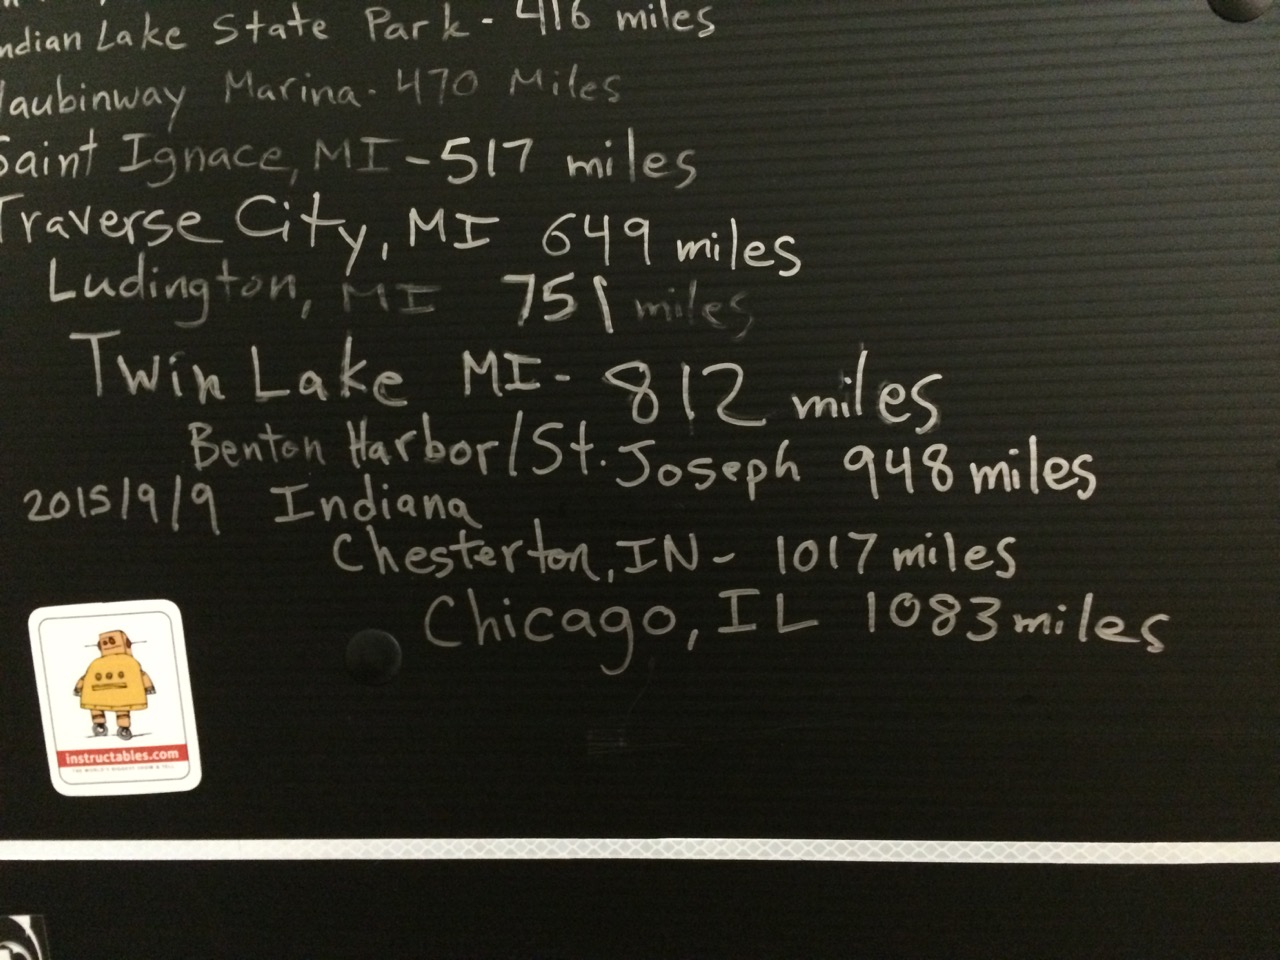 ndian Lake State Park - 416 miles
Naubinway Marina - 470 Miles
Saint Ignace, MI - 517 miles
Traverse City, MI 649 miles
Ludington, MI 751 miles
Twin Lake MI - 812 miles
Benton Harbor/St. Joseph 948 miles
2015/9/9 Indiana
Chesterton, IN - 1017 miles
Chicago, IL 1083 miles
instructables.com
THE WORLD'S BIGGEST SHOW & TELL